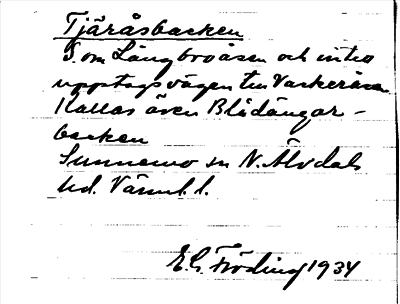 Tjäråsbacken
S. om Långbroåsen och intill
uppstagsvägen till Vackeråsen
Kallas även Blådängar-
backen
Sunnemo sn N. Älvdals
hd. Värml. l.
E. G. Fröding 1934